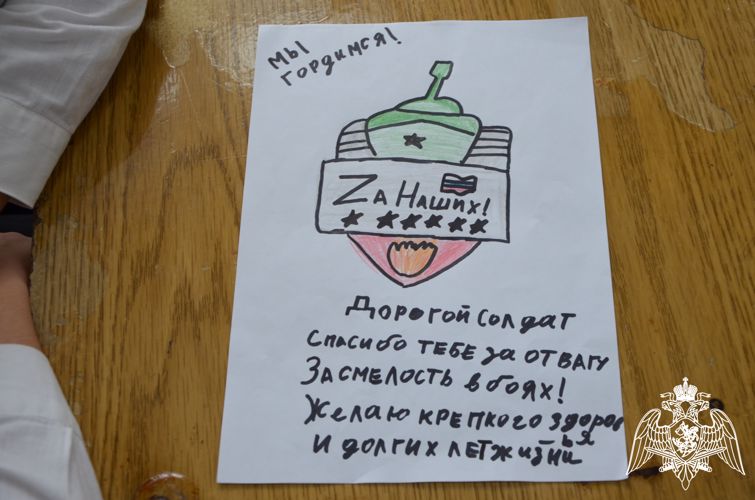 Мы
гордимся!
Zа Наших!
Дорогой солдат
Спасибо тебе за отвагу
За смелость в боях!
Желаю крепкого здоровья
и долгих лет жизни